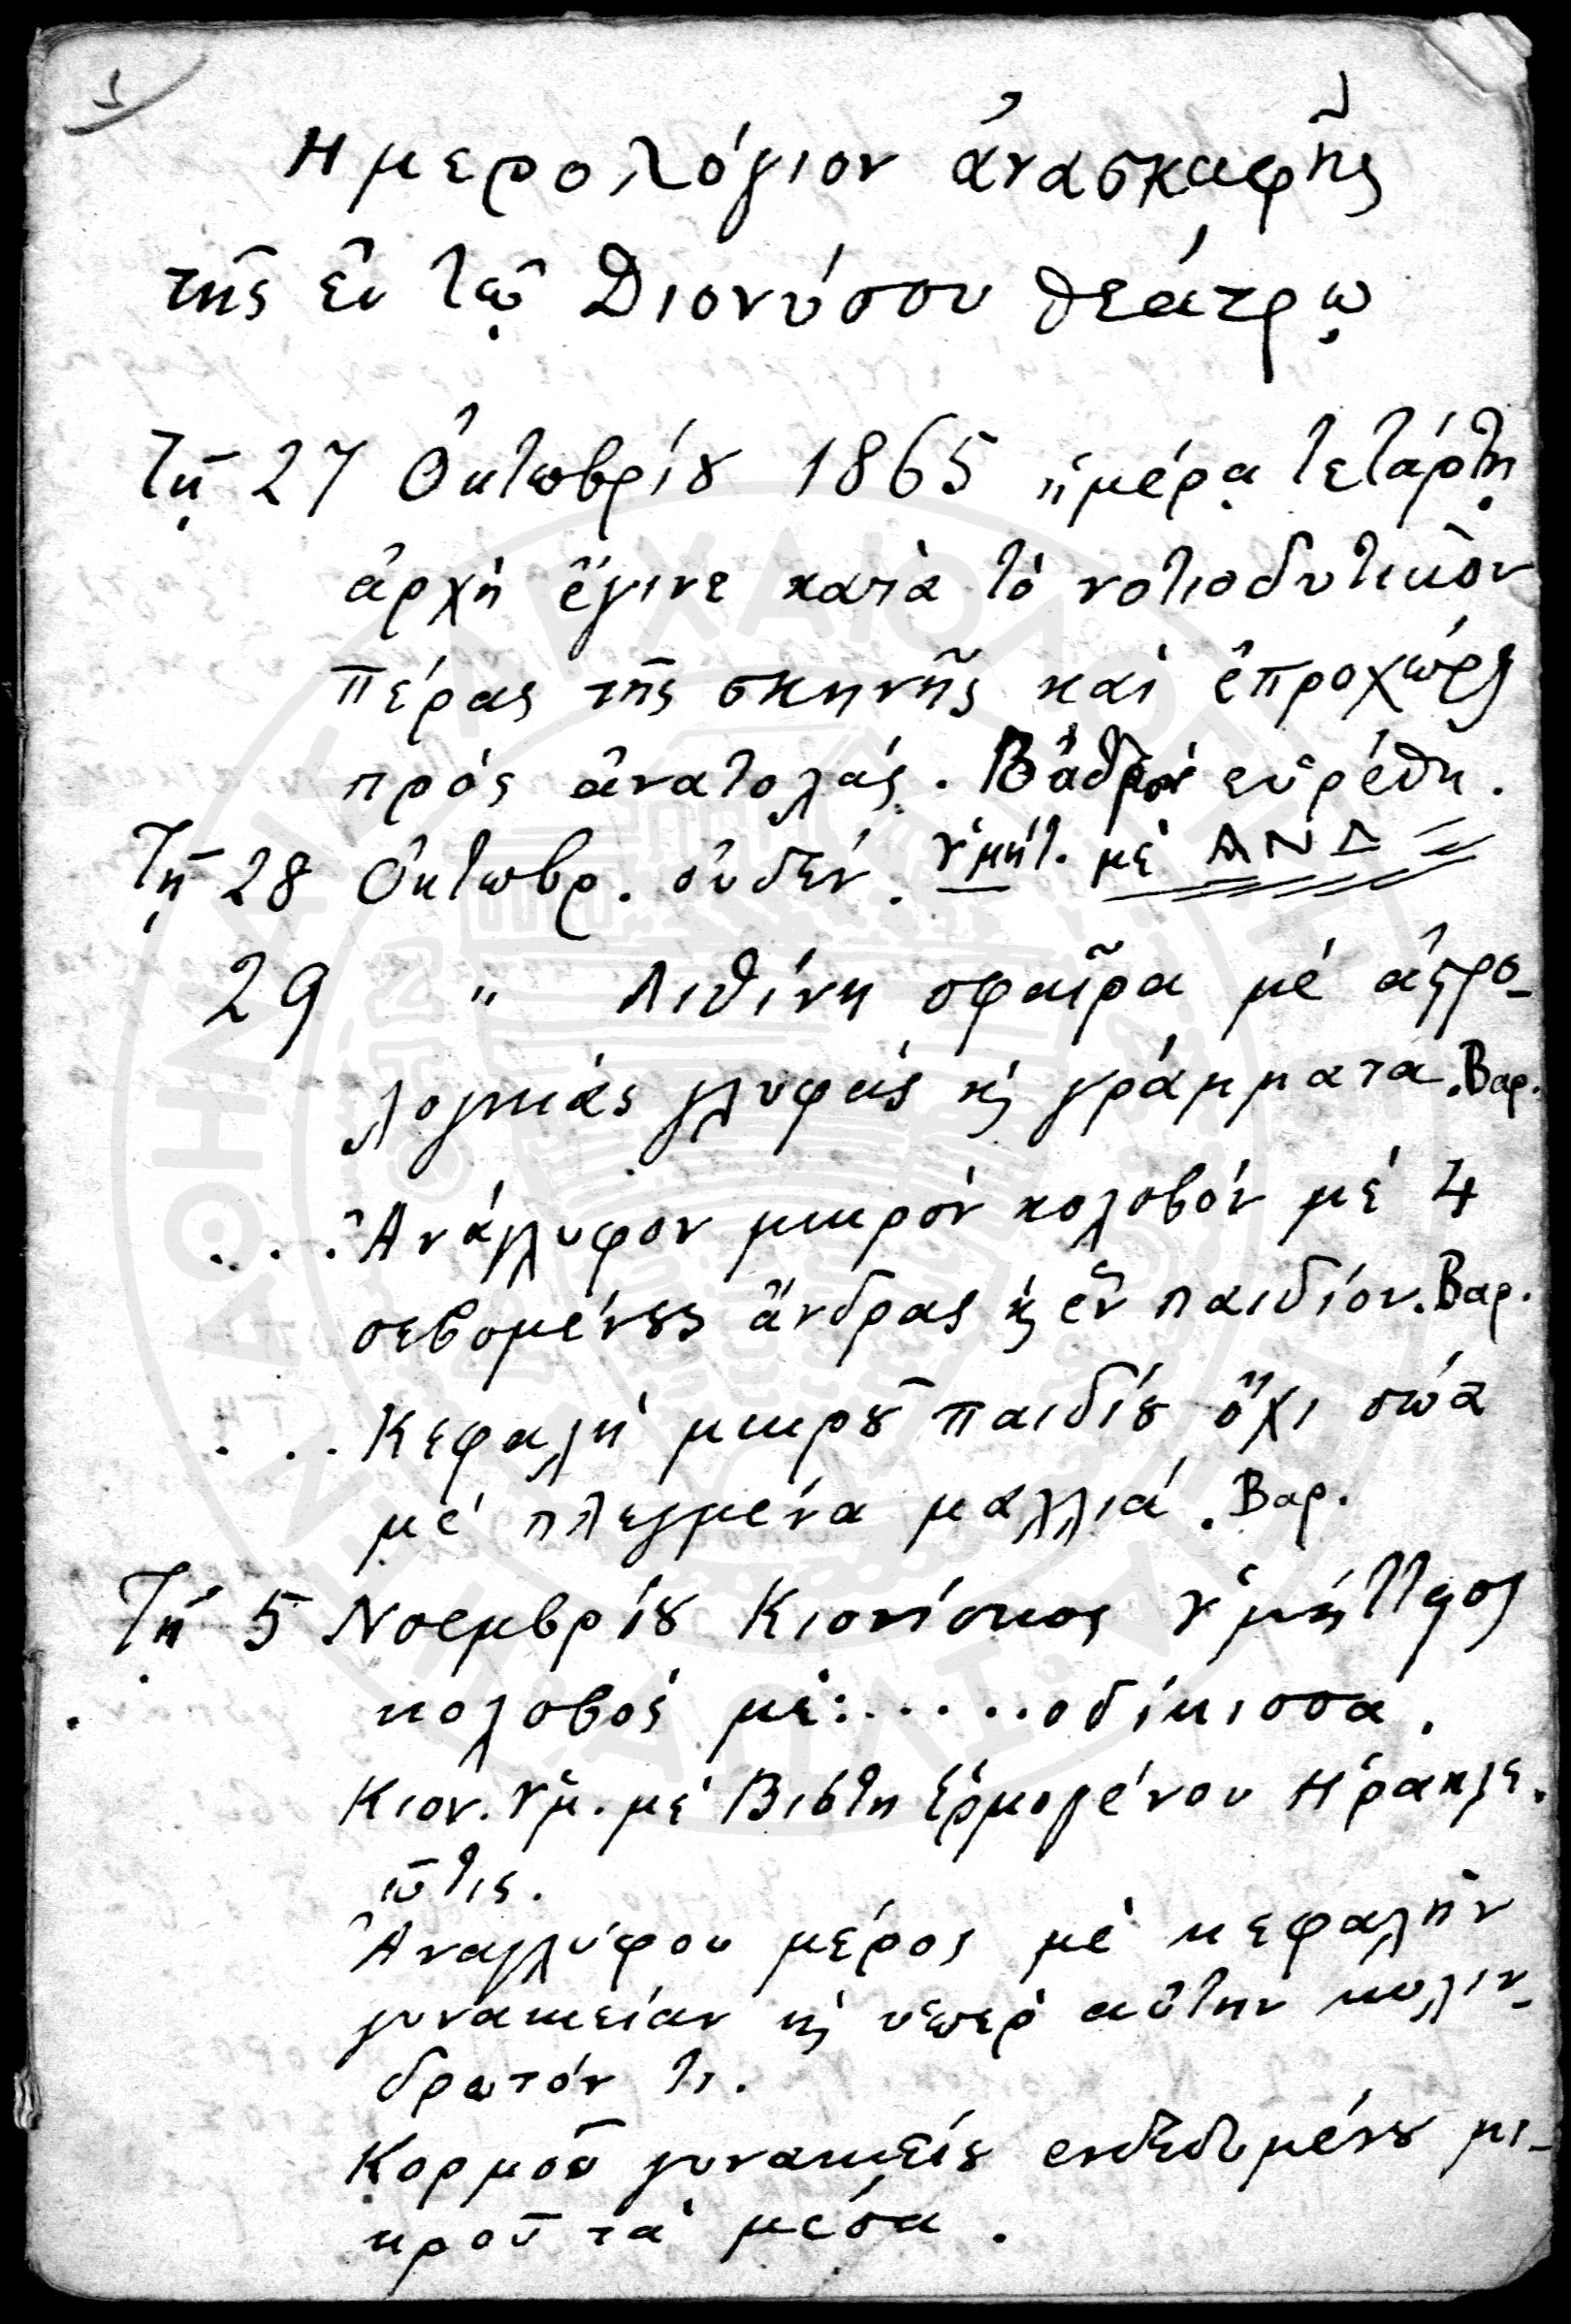 1
Ἡμερολόγιον ἀνασκαφῆς
τῆς ἐν τῷ Διονύσου θεάτρῳ
Τῇ 27 Ὀκτωβρίȣ 1865 ἡμέρᾳ τετάρτῃ
ἀρχὴ ἔγινε κατὰ τὸ νοτιοδυτικὸν
πέρας τῆς σκηνῆς καὶ ἐπροχώρει
πρὸς ἀνατολάς. εὑρέθη.
Τῇ 28 Ὀκτωβρ. οὐδέν. Ὑμήτ. μὲ ΑΝΔ
29 〃 Λιθίνη σφαῖρα μὲ ἀϛρο-
λογικὰς γλυφὰς ϗ γράμματα. Βαρ.
... Ἀνάγλυφον μικρὸν κολοβὸν μὲ 4
σεβομένȣς ἄνδρας ϗ ἓν παιδίον. Βαρ.
... Κεφαλὴ μικρȣ͂ παιδίȣ ὄχι σώα
μὲ πλεγμένα μαλλιά. Βαρ.
Τῇ 5 Νοεμβρίȣ Κιονίσκος Ὑμήττιος
κολοβὸς μὲ:.....οδίκισσα.
Κιον. Ὑμ. μὲ Βιότη Ἑρμογένου Ἡρακλε.
ῶτις.
Ἀναγλύφου μέρος μὲ κεφαλὴν
γυναικείαν ϗ ὑπὲρ αὐτὴν κυλιν-
δρωτόν τι.
Κορμοῦ γυναικείȣ ἐνδεδυμένȣ μι-
κροῦ τὰ μέσα.
ΑΡΧΑΙΟΛΟΓΙΚΗ ΕΤΑΙΡΕΙΑ